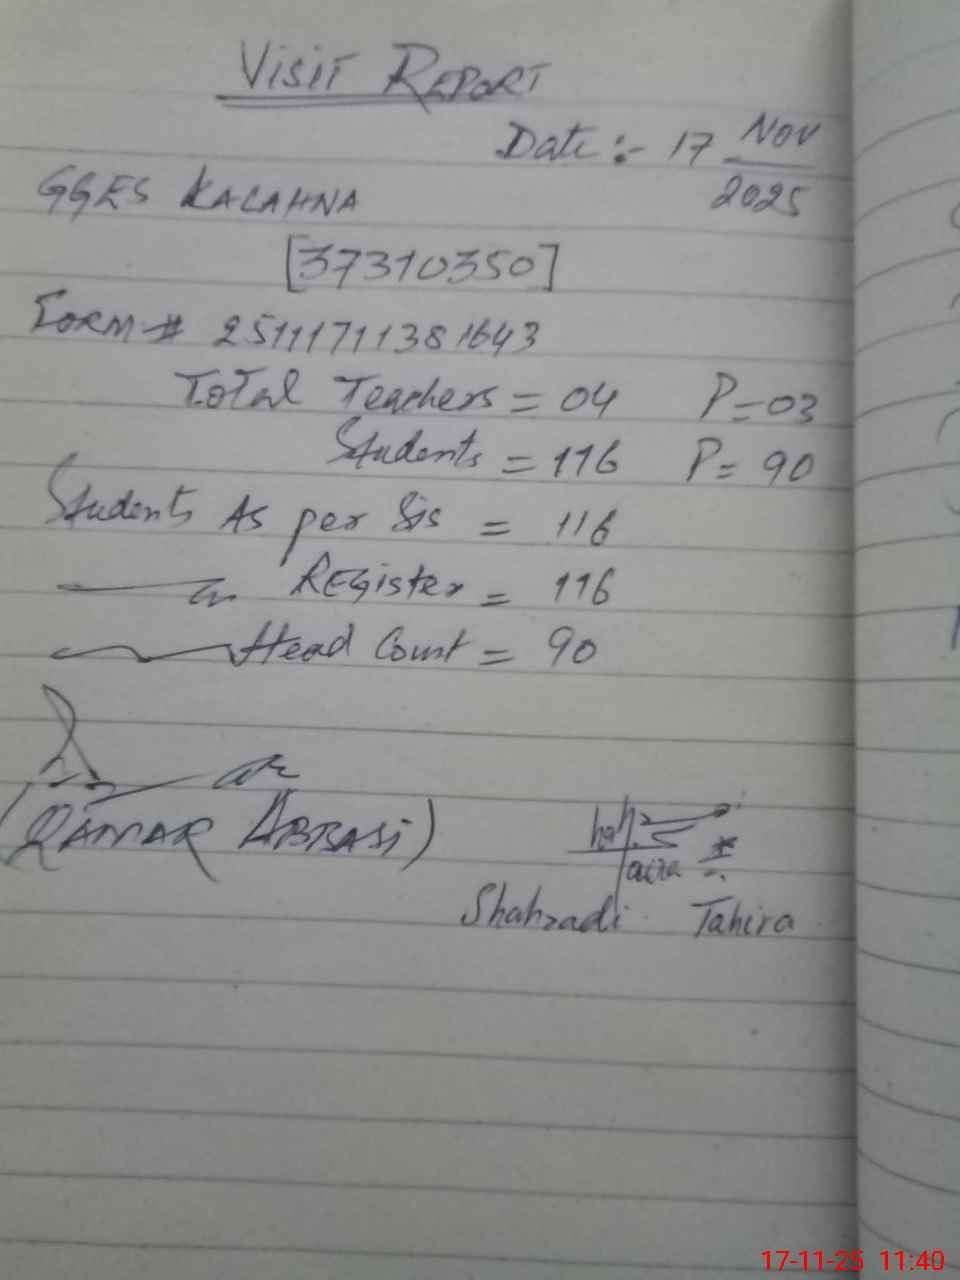 VISIT REPORT
Date :- 17 NOV
2025
GGES KALAHNA
[37310350]
FORM # 25111711381643
Total Teachers = 04 P=03
Students = 116 P= 90
Students As per Sis = 116
Register = 116
Head Count = 90
(QAMAR ABBASi)
Shahzadi Tahira
17-11-25 11:40